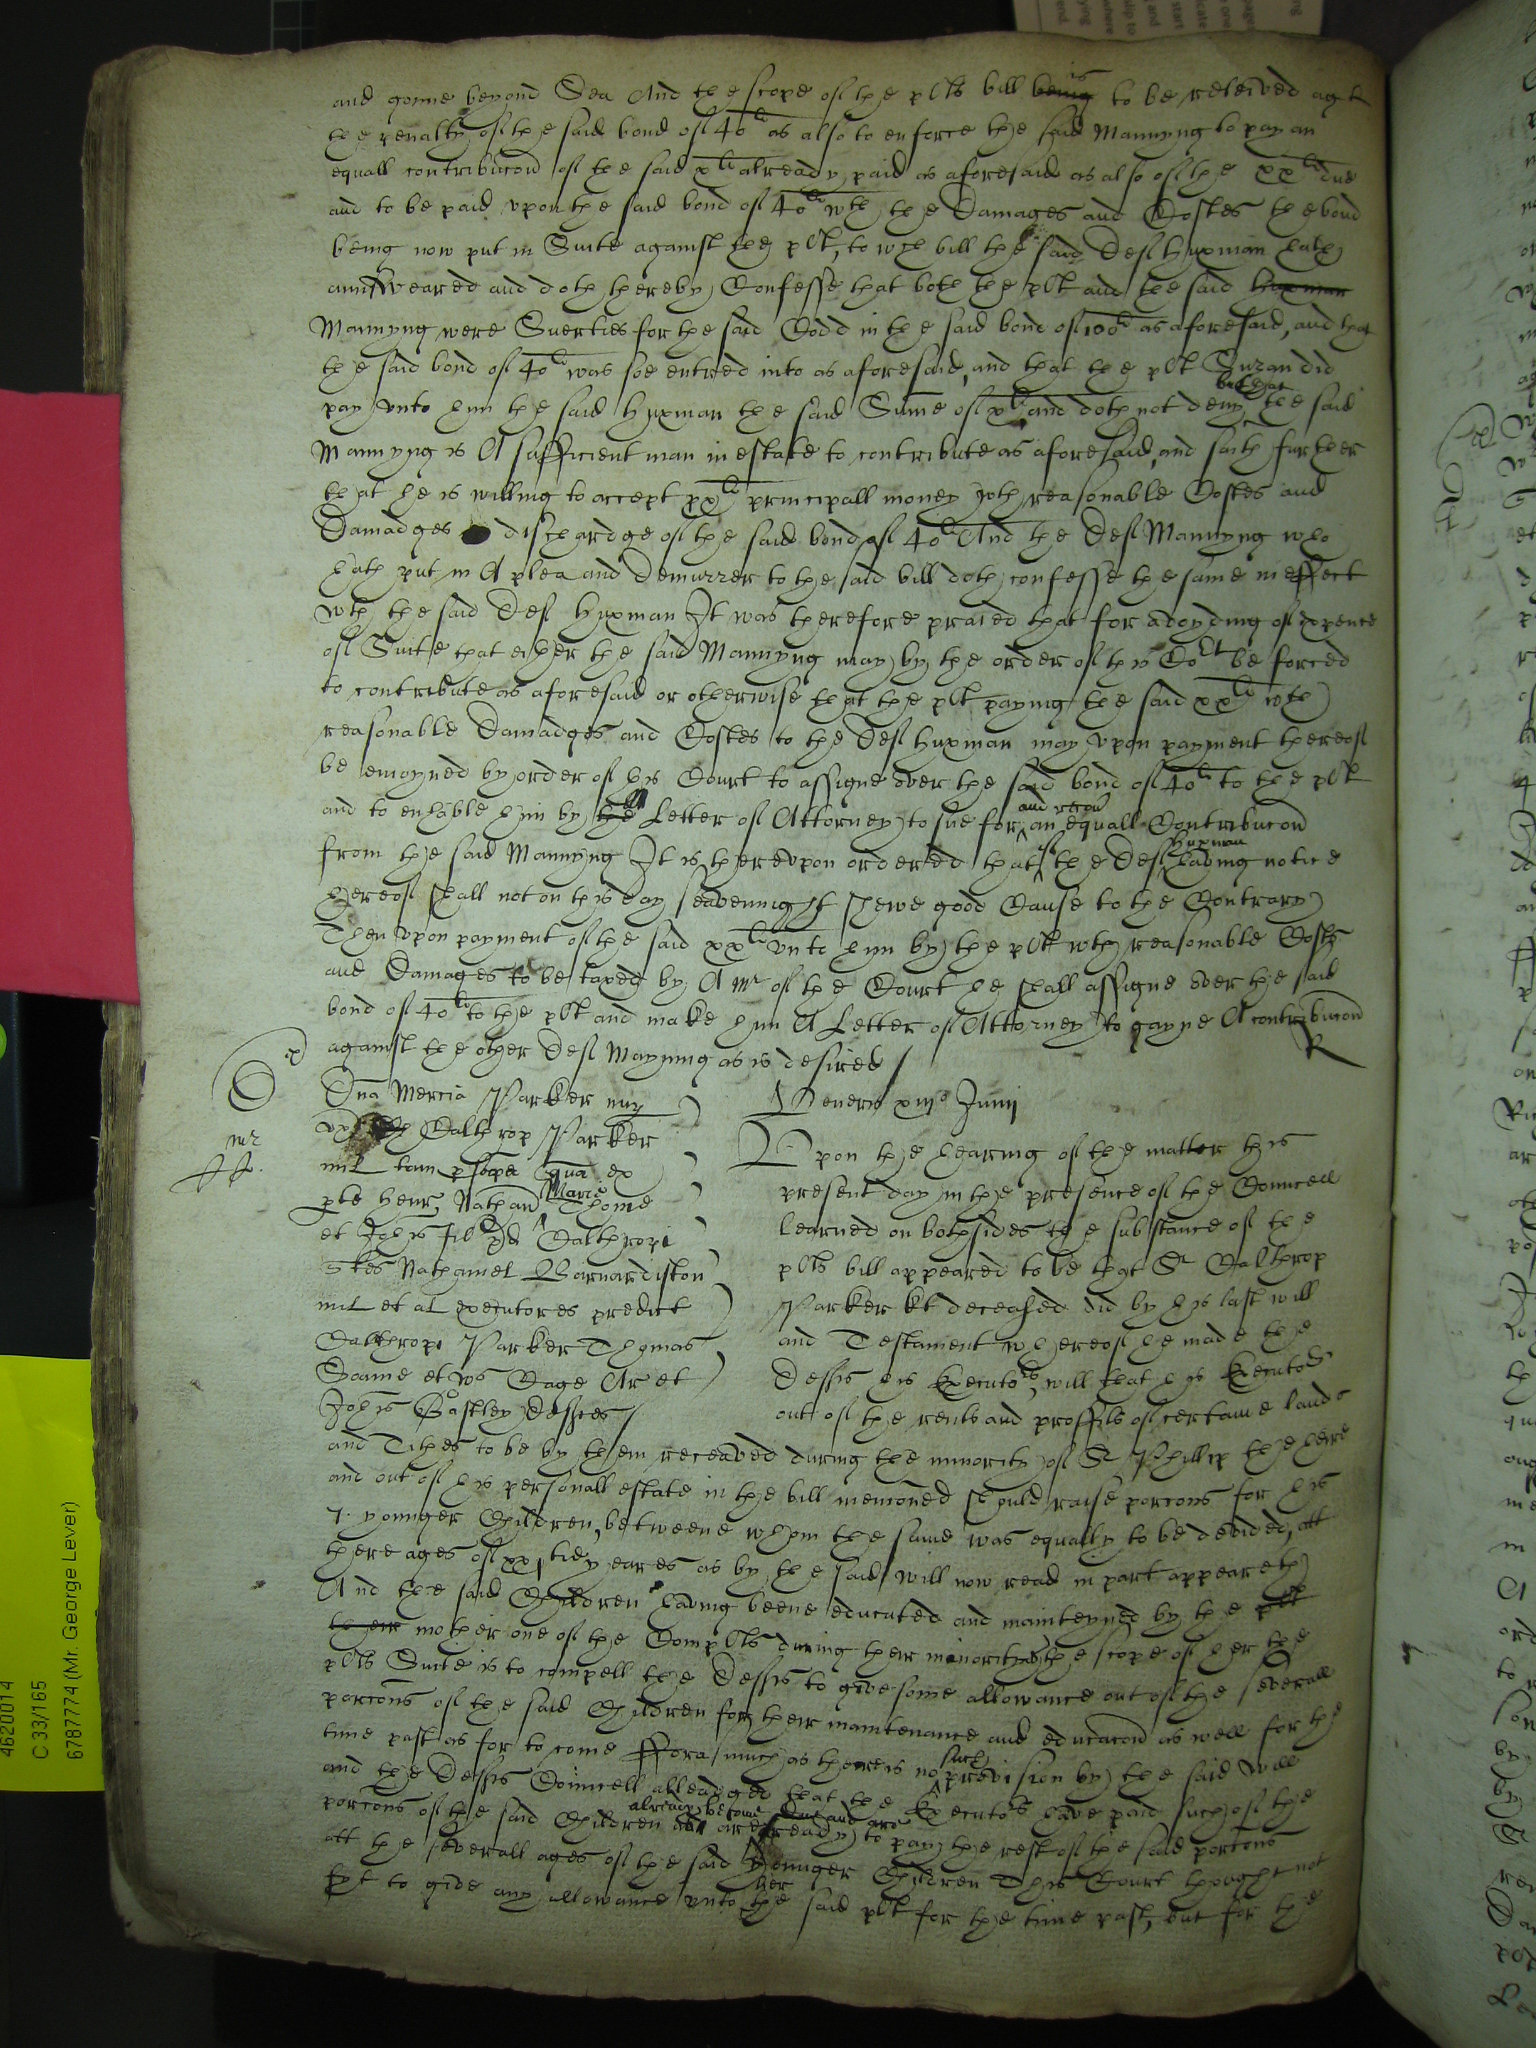 and gonne beyond Sea And the scope of the plts bill being is to be releived agt
the penalty of the said bond of 40li as also to enforce the said Mannyng to pay an
equall contribucon of the said xli already paid as aforesaid as also of the xxli due
and to be paid vpon the said bond of 40li wth the Damages and Costes the bond
being now put in Suite against the plt, to wch bill the said Deft Huxman hath
aunsweared and doth thereby Confesse that both the plt and the said Huxman
Mannyng were Suerties for the said Codd in the said bond of 100li as aforesaid, and that
the said bond of 40li was soe entred into as aforesaid, and that the plt did
pay vnto him the said Huxman the said Sume of xli and doth not deny but that the said
Mannyng is A sufficient man in estate to contribute as aforesaid, and saith further
that he is willing to accept xxli principall money wth reasonable Costes and
Damadges dischardge of the said bond of 40li And the Deft Mannyng who
hath put in A plea and demurrer to the said bill doth confesse the same in effect
wth the said Deft Huxman It was therefore praied that for avoyding of expence
of Suite that either the said Mannyng may by the order of this Cort be forced
to contribute as aforesaid or otherwise that the plt paying the said xxli wth
reasonable Damadges and Costes to the Deft Huxman may vpon payment thereof
be enioyned by order of this Court to assigne over the said bond of 40li to the plt
and to enhable him by the Letter of Attorney to sue for and recover an equall Contribucon
from the said Mannyng It is therevpon ordered that if the Deft Huxman having notice
hereof shall not on this day seavennight shewe good Cause to the Contrary
Then vpon payment of the said xxli vnto him by the plt wth reasonable Costs
and Damages to be taxed by A mr of the Court he shall assigne over the said
bond of 40li to the plt and make him A Letter of Attorney to gayne A contribucon
against the other Deft Maynnng as is desired /
R
Dna Mercia Parker nup
vx Calthrop Parker
mil tam p se qua ex
pte Henr, Nathan Marie Thome
et Johis fil Calthropi
Nathaniel Barnardiston
mil et al executores predict
Calthropi Parker Thomas
Soame et Ws Cage Ar et
Johes Bastley Defftes /
mr
Veneris xiijo Junij
Vpon the hearing of the matter this
present day in the presence of the Councell
learned on bothsides the substance of the
plts bill appeared to be that Sr Calthrop
Parker kt deceased did by his last will
and Testament whereof he made the
Deftes his Executors, will that his Executors
out of the rents and proffits of certaine lands
and Tithes to be by them receaved during the minority of Sr Phillip the heire
and out of his personall estate in the bill menconed should raise porcons for his
7. younger Children, betweene whom the same was equally to be devided, att
there ages of xxj tie yeares as by the said will now read in part appeareth
And the said Children having beene educated and mainteyned by the plt
their mother one of the Complts during their minorities the scope of her the
plts Suite is to compell the Deftes to give some allowance out of the severall
porcons of the said Children for their maintenance and educacon as well for the
time past as for to come fforasmuch as there is no such provision by the said Will
and the Deftes Councell alleadged that the Executors have paid such of the
porcons of the said Children as already become due and are ready to pay the rest of the said porcons
att the severall ages of the said younger Children This Court thought not
fitt to give any allowance vnto her the said plt for the time past, but for the
4620014
C 33/165
6787774 (Mr. George Lever)